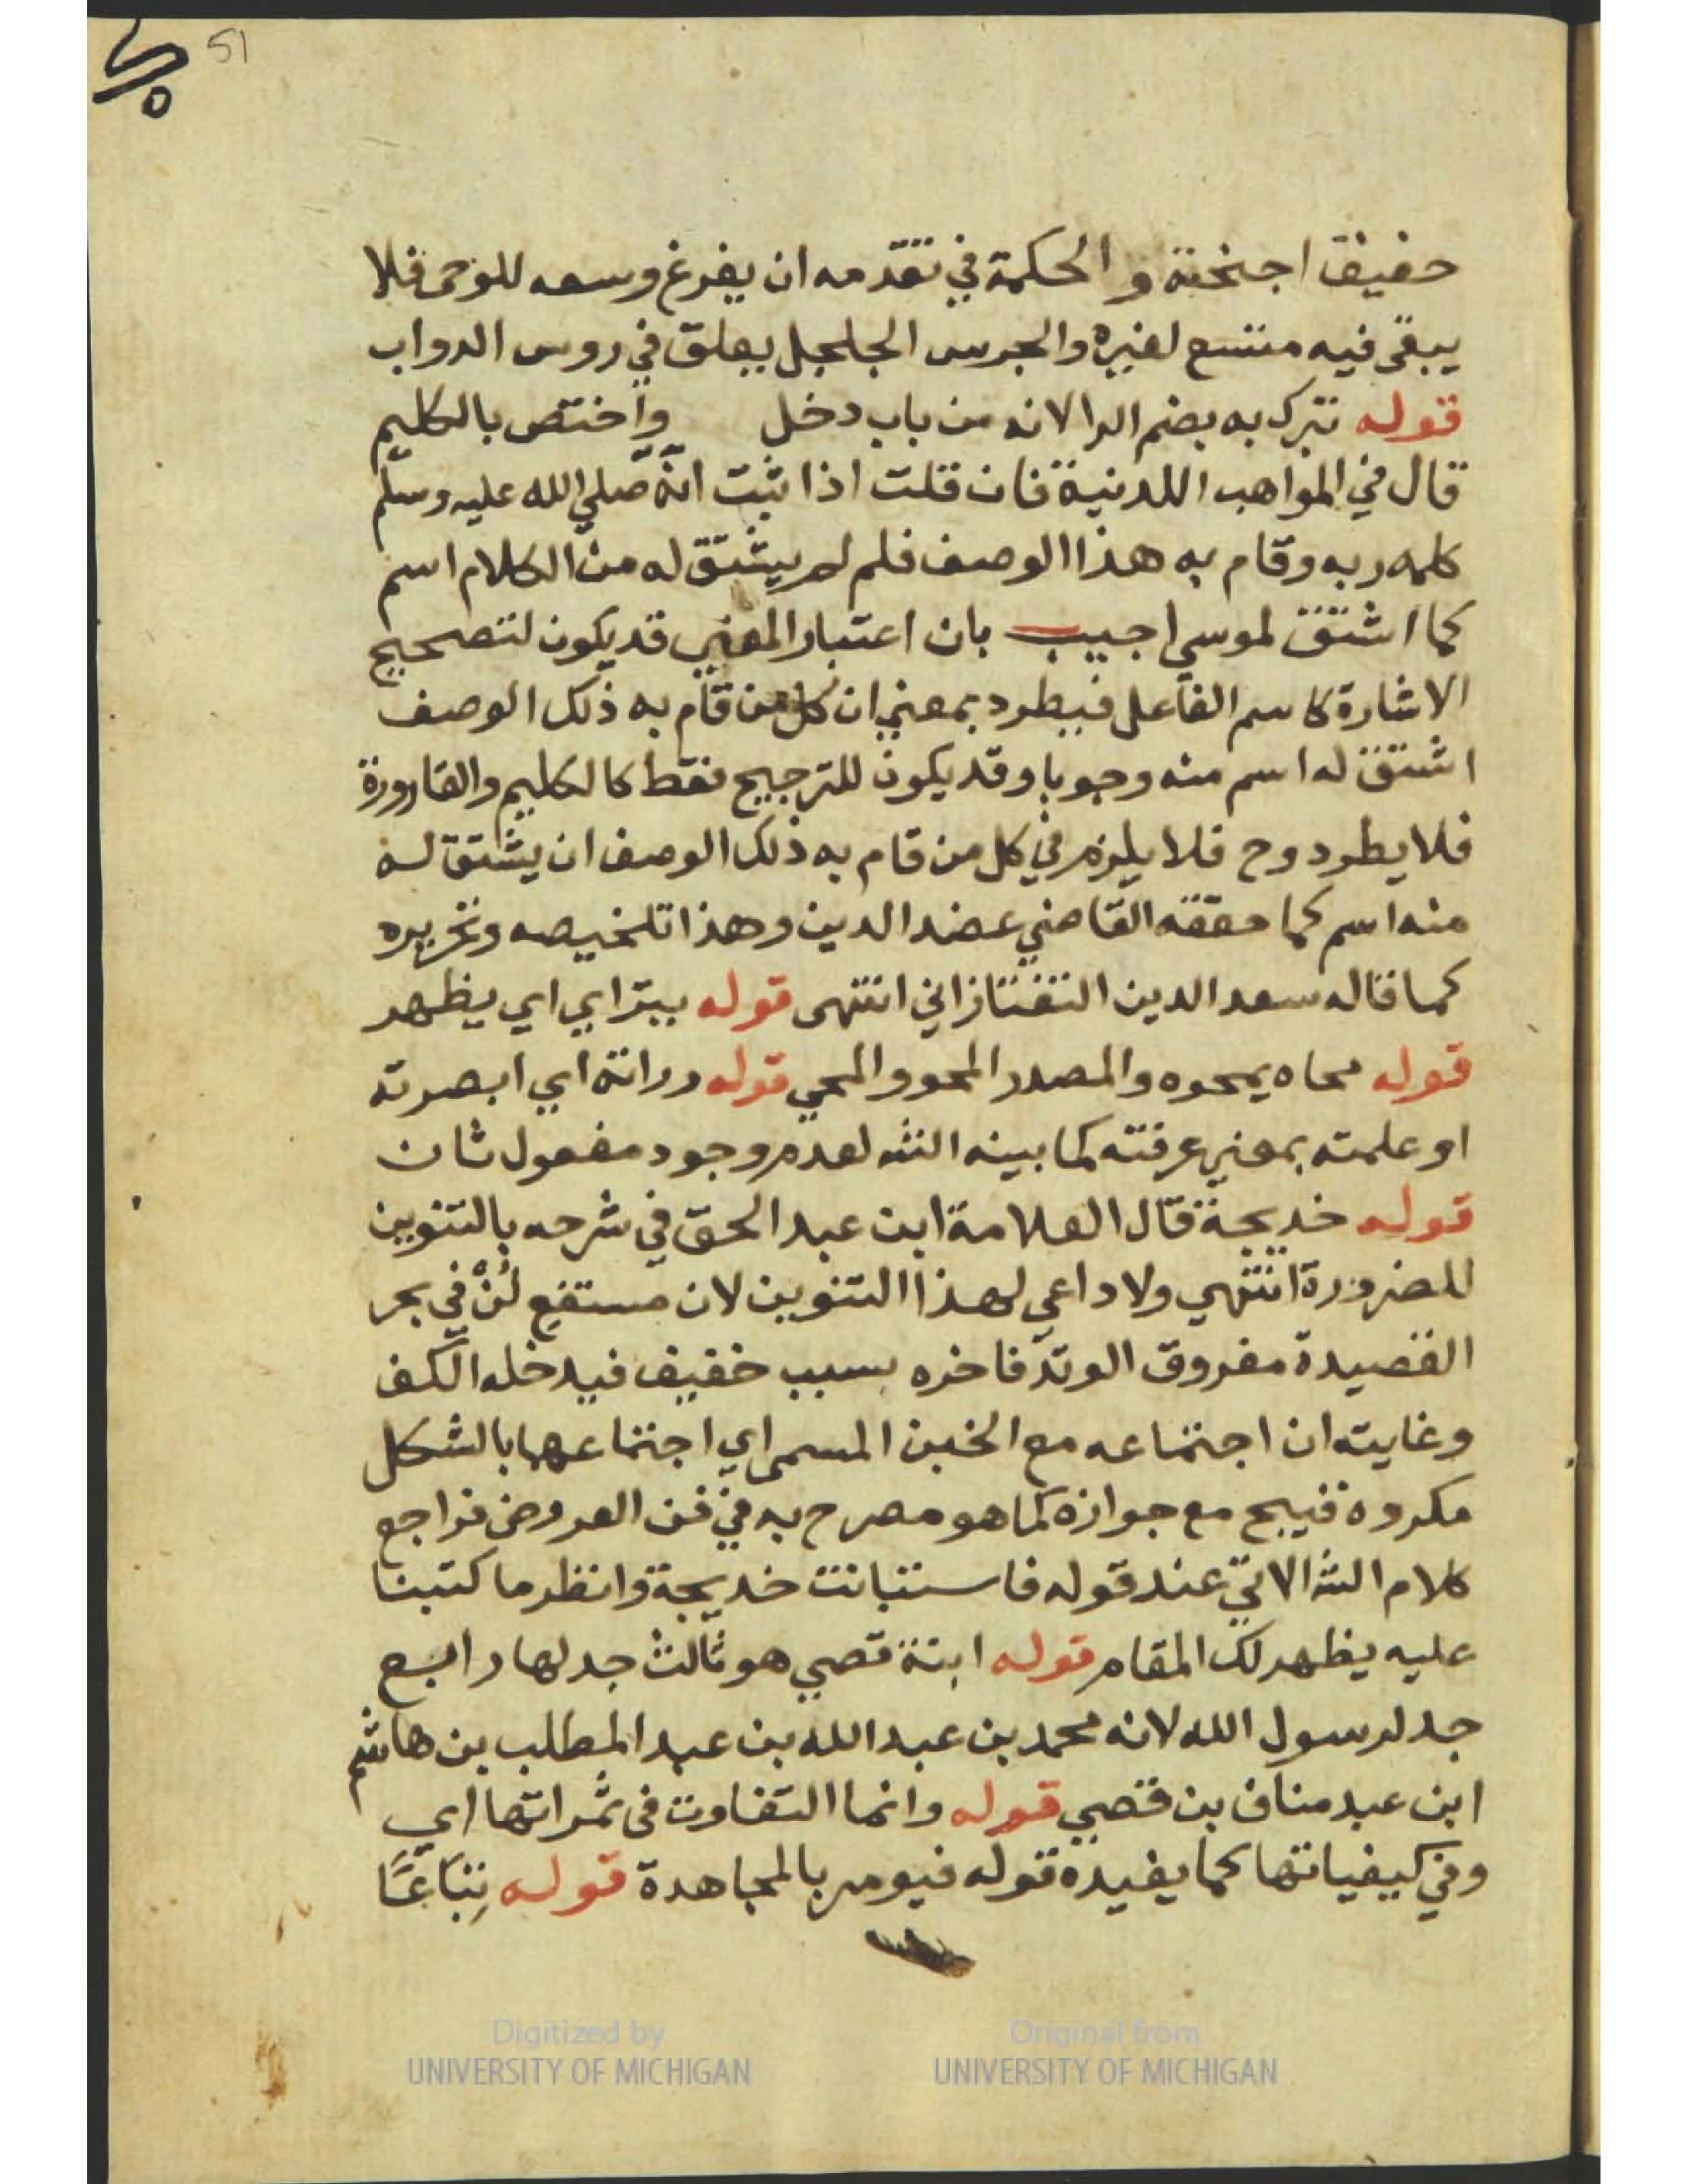 51
حفيف اجنحته و الحكمة في تقدمه ان يفرغ وسعه للوحى فلا
يبقى فيه متسع لغيره والجرس الجلجل يعلق في روس الدواب
قوله تترك به بضم الرا لانه من باب دخل واختص بالكليم
قال في المواهب اللدنية فان قلت اذا ثبت انه صلي الله عليه وسلم
كلمه ربه وقام به هذا الوصف فلم لم يشتق له من الكلام اسم
كما اشتق لموسي اجيب بان اعتبار المعني قد يكون لتصحيح
الاشارة كاسم الفاعل فيطرد بمعني ان كل من قام به ذلك الوصف
اشتق له اسم منه وجوبا وقد يكون للترجيح فقط كالكليم والقارورة
فلا يطرد وح فلا يلزم في كل من قام به ذلك الوصف ان يشتق له
منه اسم كما حققه القاضي عضد الدين وهذا تلخيصه وتحريره
كما قاله سعد الدين التفتازاني انتهى قوله يتراي اي يظهر
قوله محاه يمحوه والمصدر المحو والمحي قوله وراته اي ابصرته
او علمته بمعني عرفته كما بينه الشه لعدم وجود مفعول ثان
قوله خديجة قال العلامة ابن عبد الحق في شرحه بالتنوين
للضرورة انتهي ولا داعي لهذا التنوين لان مستفع لن في بحر
القصيدة مفروق الوتد فاخره بسبب خفيف فيدخله الكف
وغايته ان اجتماعه مع الخبن المسمى اي اجتماعهما بالشكل
مكروه قبيح مع جوازه كما هو مصرح به في فن العروض فراجع
كلام الشه الاتي عند قوله فاستبانت خديجة وانظر ما كتبنا
عليه يظهر لك المقام قوله ابنة قصي هو ثالث جد لها ورابع
جد لرسول الله لانه محمد بن عبد الله بن عبد المطلب بن هاشم
ابن عبد مناف بن قصي قوله وانما التفاوت فى ثمراتها اي
وفي كيفياتها كما يفيده قوله فيومر بالمجاهدة قوله تِبَاعًا
Digitized by
UNIVERSITY OF MICHIGAN
Original from
UNIVERSITY OF MICHIGAN